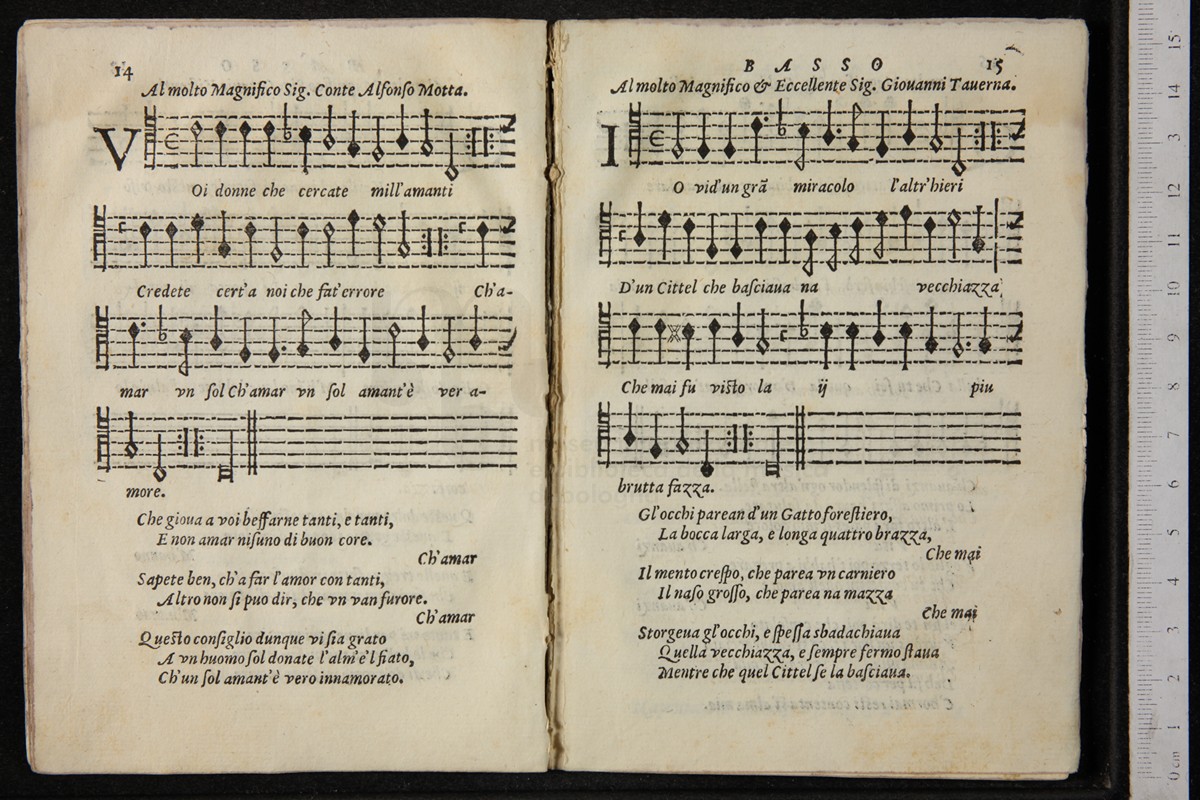 14
Al molto Magnifico Sig. Conte Alfonso Motta.
V
Oi donne che cercate mill'amanti
Credete cert'a noi che fat'errore Ch'a-
mar vn sol Ch'amar vn sol amant'è ver a-
more.
Che gioua a voi beffarne tanti, e tanti,
E non amar nisuno di buon core.
Ch'amar
Sapete ben, ch'a far l'amor con tanti,
Altro non si puo dir, che vn van furore.
Ch'amar
Questo consiglio dunque vi sia grato
A vn huomo sol donate l'alm'e'l fiato,
Ch'un sol amant'è vero innamorato.
BASSO 15
Al molto Magnifico & Eccellente Sig. Giouanni Tauerna.
I
O vid'un grã miracolo l'altr'hieri
D'un Cittel che basciaua na vecchiazza
Che mai fu visto la ij piu
brutta fazza.
Gl'occhi parean d'un Gatto forestiero,
La bocca larga, e longa quattro brazza,
Che mai
Il mento crespo, che parea vn carniero
Il naso grosso, che parea na mazza
Che mai
Storgeua gl'occhi, e spessa sbadachiaua
Quella vecchiazza, e sempre fermo staua
Mentre che quel Cittel se la basciaua.
0 cm 1 2 3 4 5 6 7 8 9 10 11 12 13 14 15